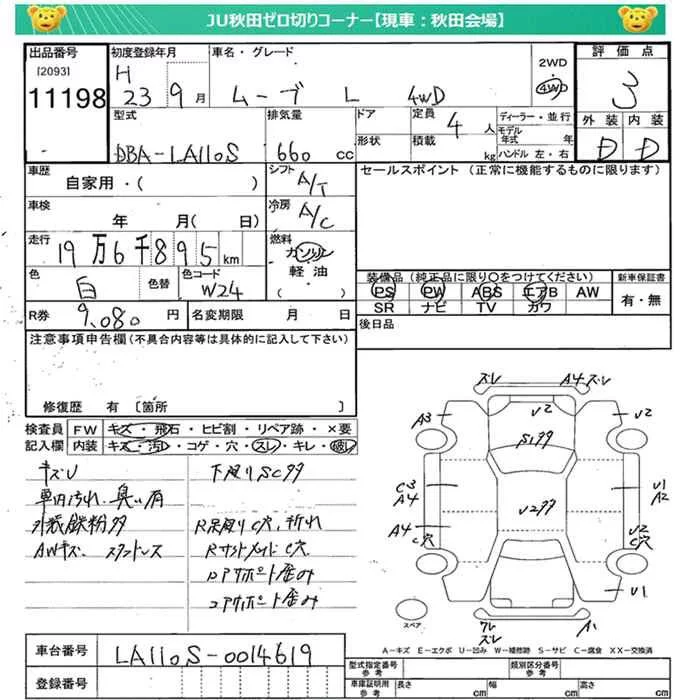 JU秋田ゼロ切りコーナー【現車：秋田会場】
出品番号 初度登録年月 車名・グレード 評価点
[2093] 11198
H 23 9月 ムーブ L 4WD
2WD 4WD
3
型式 排気量 ドア 定員 4人 ディーラー・並行
モデル年式 年
外装 内装
DBA-LA110S 660cc 形状 積載 kg ハンドル 左・右
D D
車歴 自家用・( ) シフト A/T セールスポイント (正常に機能するものに限ります)
車検 年 月( 日) 冷房 A/C
走行 19万6千895km 燃料 ガソリン 軽油 ( )
色 白 色替 色コード W24
装備品(純正品に限り○をつけてください) 新車保証書
PS PW ABS エアB AW 有・無
SR ナビ TV カワ
R券 9,080円 名変期限 月 日
後日品
注意事項申告欄(不具合内容等は具体的に記入して下さい)
修復歴 有 [箇所 ]
検査員記入欄 FW キズ・飛石・ヒビ割・リペア跡・×要
内装 キズ・汚レ・コゲ・穴・スレ・キレ・破レ
キズU 下廻りSC多
車内汚れ、臭い有
外装鉄粉多 R足廻りC穴、折れ
AWキズ. スタッドレス RサイドメンバC穴
コアサポート歪み
コアサポート歪み
ズレ A4ズレ
A3 U2 U2
S1多
C3 A4 U1 A2
U2多
A4 C穴 U2 C穴
U1
ワレ ズレ A1
スペア
A-キズ E-エクボ U-凹み W-補修跡 S-サビ C-腐食 XX-交換済
車台番号 LA110S-0014619
登録番号
型式指定番号 参考 類別区分番号 参考
車庫証明用 参考 長さ cm 幅 cm 高さ cm